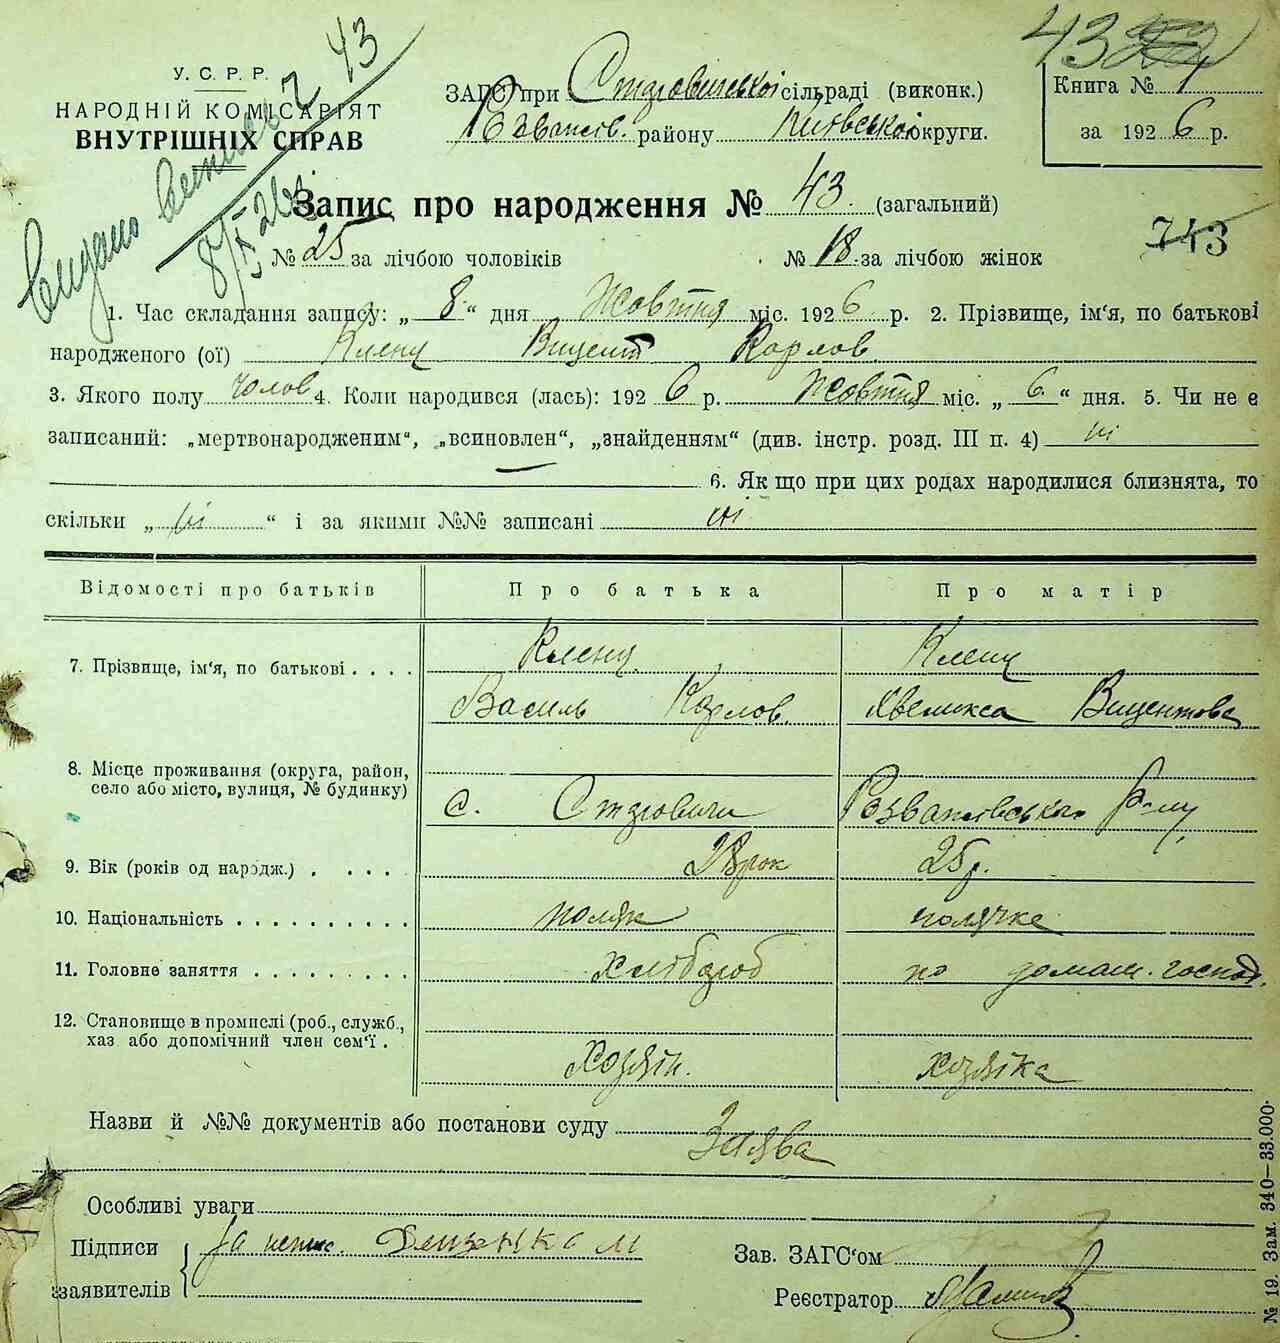 43
43
У. С. Р. Р.
НАРОДНІЙ КОМІСАРІЯТ
ВНУТРІШНІХ СПРАВ
Видано
ЗАГС при сільраді (виконк.)
Розважів. району Київської округи.
Книга № 1
за 1926 р.
Запис про народження № 43. (загальний)
743
№ 25 за лічбою чоловіків № 18. за лічбою жінок
1. Час складання запису: „ 8 “ дня Жовтня міс. 1926 р. 2. Прізвище, ім'я, по батькові
народженого (ої) Кленц Вицент Карлов.
3. Якого полу Чолов 4. Коли народився (лась): 1926 р. Жовтня міс. „ 6 “ дня. 5. Чи не є
записаний: „мертвонародженим“, „всиновлен“, „знайденням“ (див. інстр. розд. III п. 4) ні
6. Як що при цих родах народилися близнята, то
скільки „ ні “ і за якими №№ записані ні
Відомості про батьків Про батька Про матір
7. Прізвище, ім'я, по батькові . . . . Кленц Кленц
Василь Карлов. Вицентова
8. Місце проживання (округа, район,
село або місто, вулиця, № будинку)
с. Розважівського
9. Вік (років од народж.) . . . . . 28 рок 25 р.
10. Національність . . . . . . . . . . поляк полячка
11. Головне заняття . . . . . . . . . Хлібороб по домаш. господ.
12. Становище в промислі (роб., служб.,
хаз або допомічний член сем'ї .
Хозяїн. хозяїка
Назви й №№ документів або постанови суду Заява
Особливі уваги
Підписи
заявителів
За непис.
Зав. ЗАГС'ом
Реєстратор
№ 19. Зам. 340—33.000.